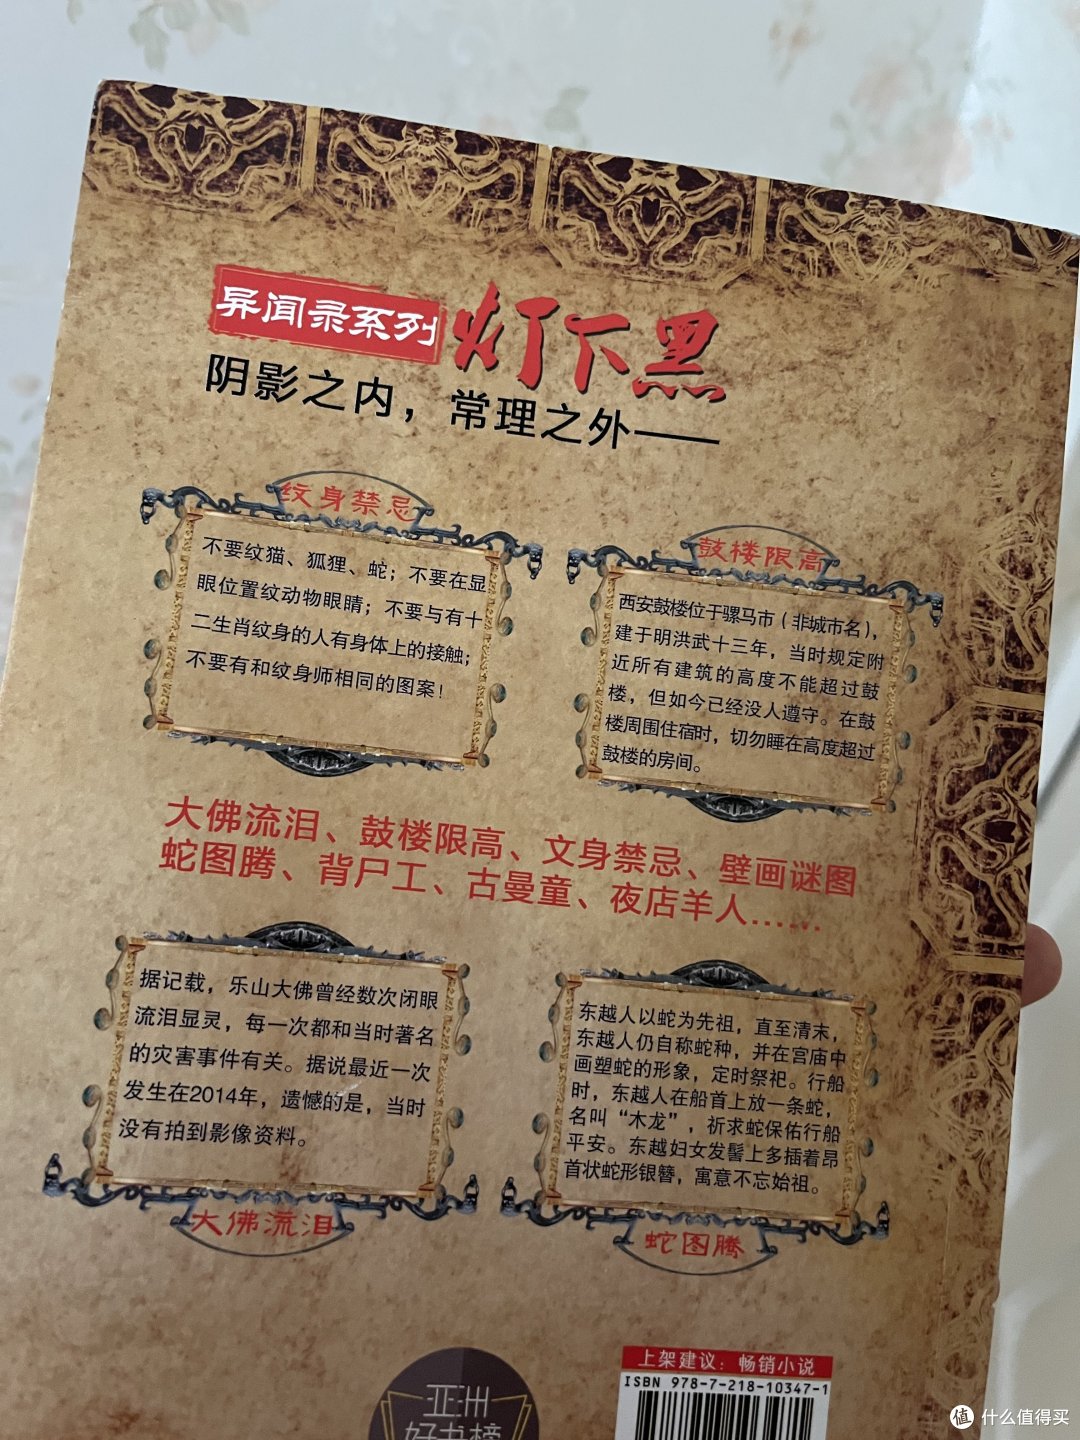 异闻录系列 灯下黑
阴影之内，常理之外——
纹身禁忌
不要纹猫、狐狸、蛇；不要在显
眼位置纹动物眼睛；不要与有十
二生肖纹身的人有身体上的接触；
不要有和纹身师相同的图案！
鼓楼限高
西安鼓楼位于骡马市（非城市名），
建于明洪武十三年，当时规定附
近所有建筑的高度不能超过鼓
楼，但如今已经没人遵守。在鼓
楼周围住宿时，切勿睡在高度超过
鼓楼的房间。
大佛流泪、鼓楼限高、文身禁忌、壁画谜图
蛇图腾、背尸工、古曼童、夜店羊人……
据记载，乐山大佛曾经数次闭眼
流泪显灵，每一次都和当时著名
的灾害事件有关。据说最近一次
发生在2014年，遗憾的是，当时
没有拍到影像资料。
大佛流泪
东越人以蛇为先祖，直至清末，
东越人仍自称蛇种，并在宫庙中
画塑蛇的形象，定时祭祀。行船
时，东越人在船首上放一条蛇，
名叫“木龙”，祈求蛇保佑行船
平安。东越妇女发髻上多插着昂
首状蛇形银簪，寓意不忘始祖。
蛇图腾
亚洲
好书榜
上架建议：畅销小说
ISBN 978-7-218-10347-1
值 什么值得买